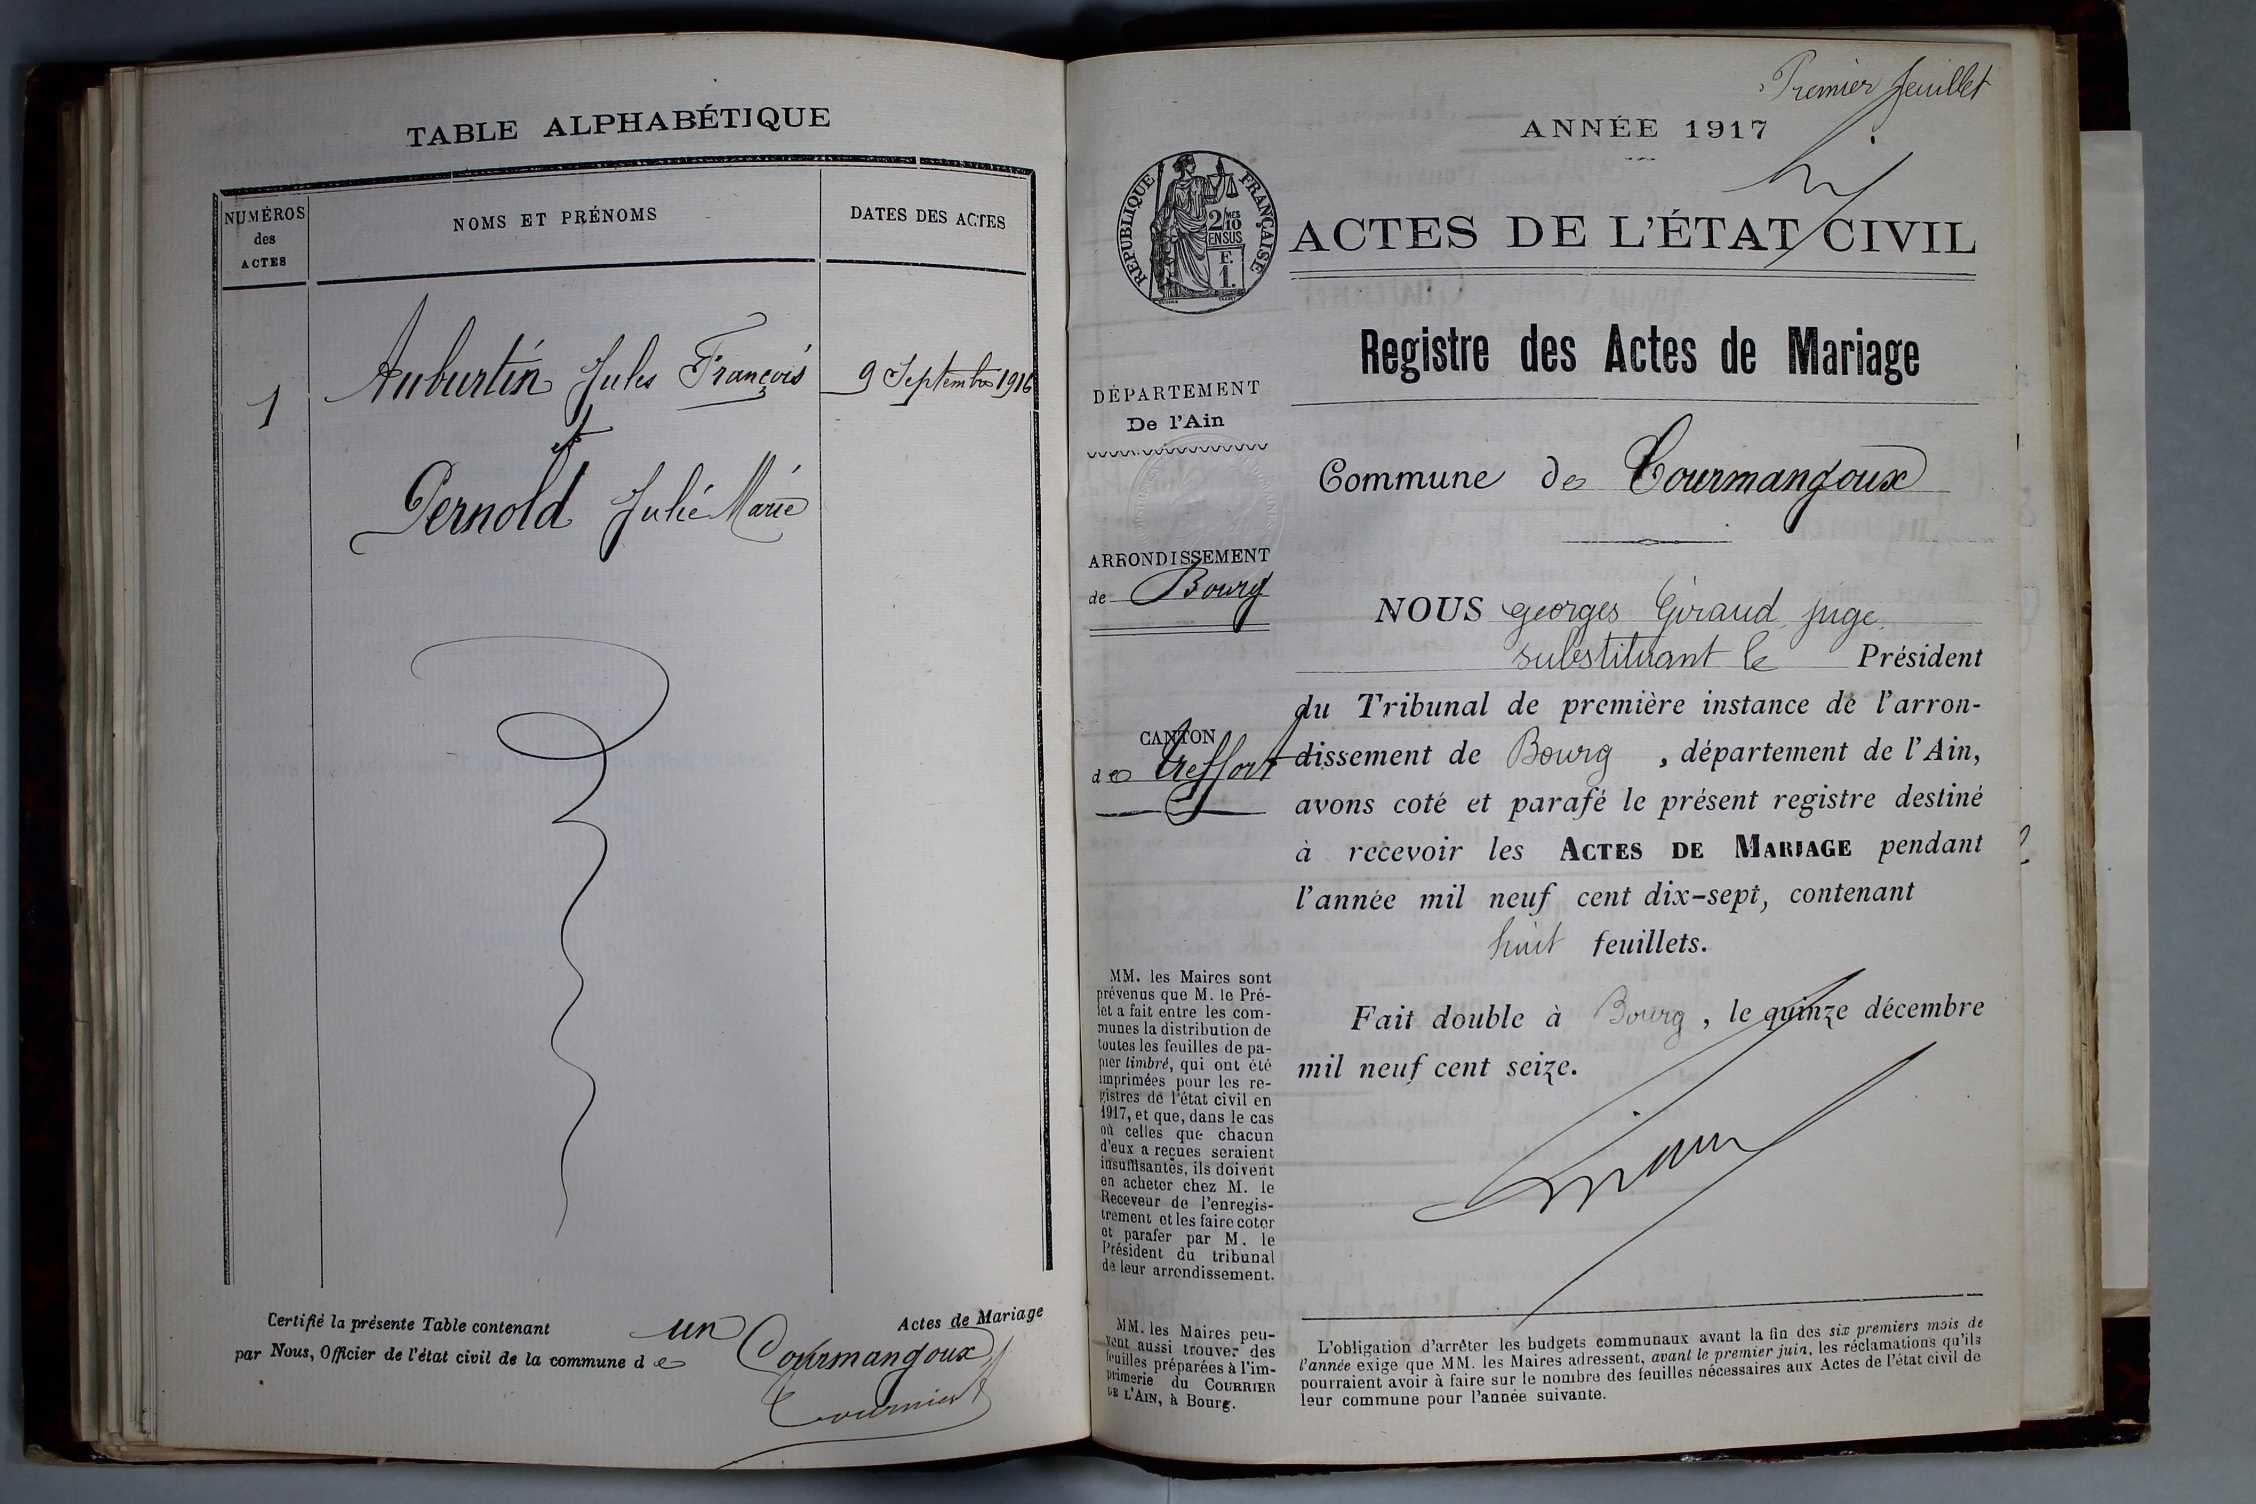 TABLE ALPHABÉTIQUE
NUMÉROS
des
ACTES
NOMS ET PRÉNOMS
DATES DES ACTES
1
Auburtin Jules François
9 Septembre 1916
et
Pernold Julie Marie
Certifié la présente Table contenant un Actes de Mariage
par Nous, Officier de l'état civil de la commune de Courmangoux
Premier feuillet
ANNÉE 1917
RÉPUBLIQUE FRANÇAISE
2/10
MES
EN SUS
F.
1.
ACTES DE L'ÉTAT CIVIL
Registre des Actes de Mariage
DÉPARTEMENT
De l'Ain
Commune de Courmangoux
ARRONDISSEMENT
de Bourg
CANTON
de Treffort
NOUS Georges Giraud, juge,
substituant le Président
du Tribunal de première instance de l'arron-
dissement de Bourg, département de l'Ain,
avons coté et parafé le présent registre destiné
à recevoir les ACTES DE MARIAGE pendant
l'année mil neuf cent dix-sept, contenant
huit feuillets.
Fait double à Bourg, le quinze décembre
mil neuf cent seize.
MM. les Maires sont
prévenus que M. le Pré-
fet a fait entre les com-
munes la distribution de
toutes les feuilles de pa-
pier timbré, qui ont été
imprimées pour les re-
gistres de l'état civil en
1917, et que, dans le cas
où celles que chacun
d'eux a reçues seraient
insuffisantes, ils doivent
en acheter chez M. le
Receveur de l'enregis-
trement et les faire coter
et parafer par M. le
Président du tribunal
de leur arrondissement.
MM. les Maires peu-
vent aussi trouver des
feuilles préparées à l'im-
primerie du COURRIER
DE L'AIN, à Bourg.
L'obligation d'arrêter les budgets communaux avant la fin des six premiers mois de
l'année exige que MM. les Maires adressent, avant le premier juin, les réclamations qu'ils
pourraient avoir à faire sur le nombre des feuilles nécessaires aux Actes de l'état civil de
leur commune pour l'année suivante.